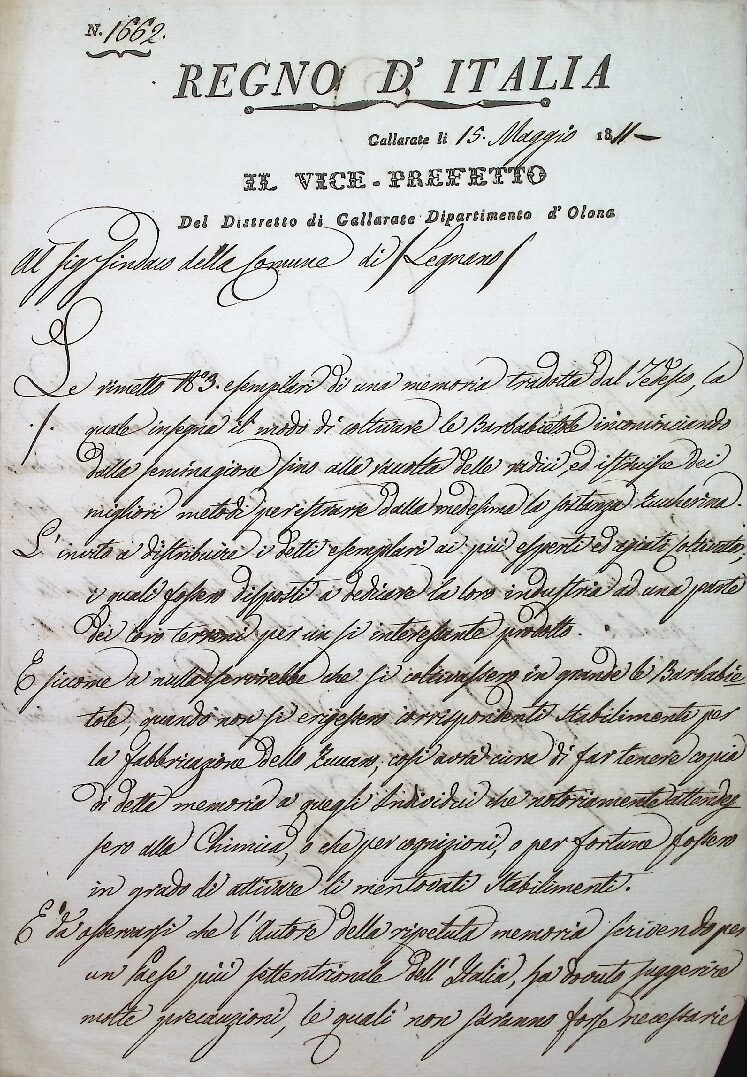 N. 1662.
REGNO D' ITALIA
Gallarate li 15. Maggio 1811
IL VICE-PREFETTO
Del Distretto di Gallarate Dipartimento d' Olona
Al Sig.r Sindaco della Comune di Legnano
Le rimetto N.° 3. esemplari di una memoria tradotta dal Tedesco, la
quale insegna il modo di coltivare le Barbabietole incominciando
dalla seminagione sino alla raccolta delle radici, ed istruisce dei
migliori metodi per estrarre dalla medesima la sostanza zuccherina.
L' invito a distribuire i detti esemplari ai più esperti ed agiati coltivatori,
i quali fossero disposti a dedicare la loro industria ad una parte
dei loro terreni per un sì interessante prodotto.
E siccome a nulla servirebbe che si coltivassero in grande le Barbabie
tole, quando non si erigessero corrispondenti Stabilimenti per
la fabbricazione dello Zuccaro, così avrà cura di far tenere copia
di detta memoria a quegli Individui che notoriamente attendes
sero alla Chimica, o che per cognizioni, o per fortune fossero
in grado di attivare li mentovati Stabilimenti.
È da osservarsi che l' Autore della ripetuta memoria scrivendo per
un Paese più settentrionale dell' Italia, ha dovuto suggerire
molte precauzioni, le quali non saranno forse necessarie